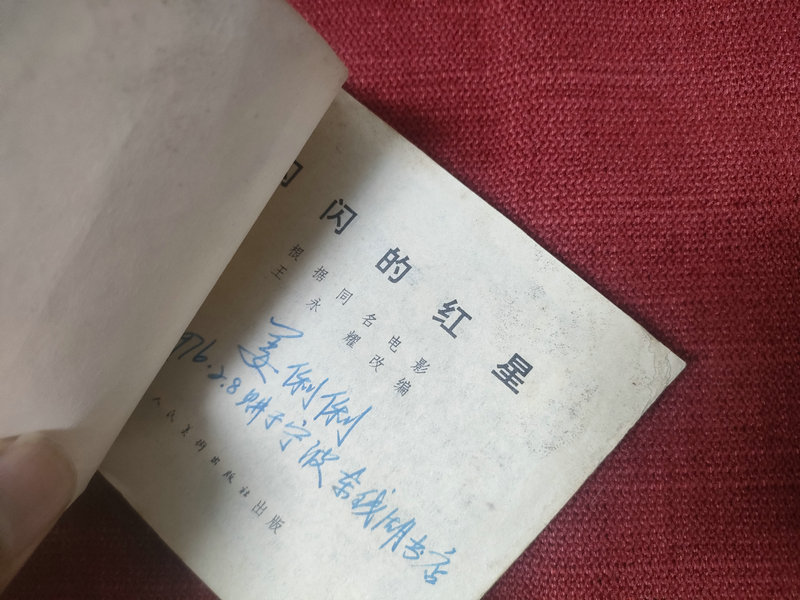 闪的红星
根据同名电影
王永耀改编
姜俐俐
976.2.8购于宁波东钱湖书店
人民美術出版社出版